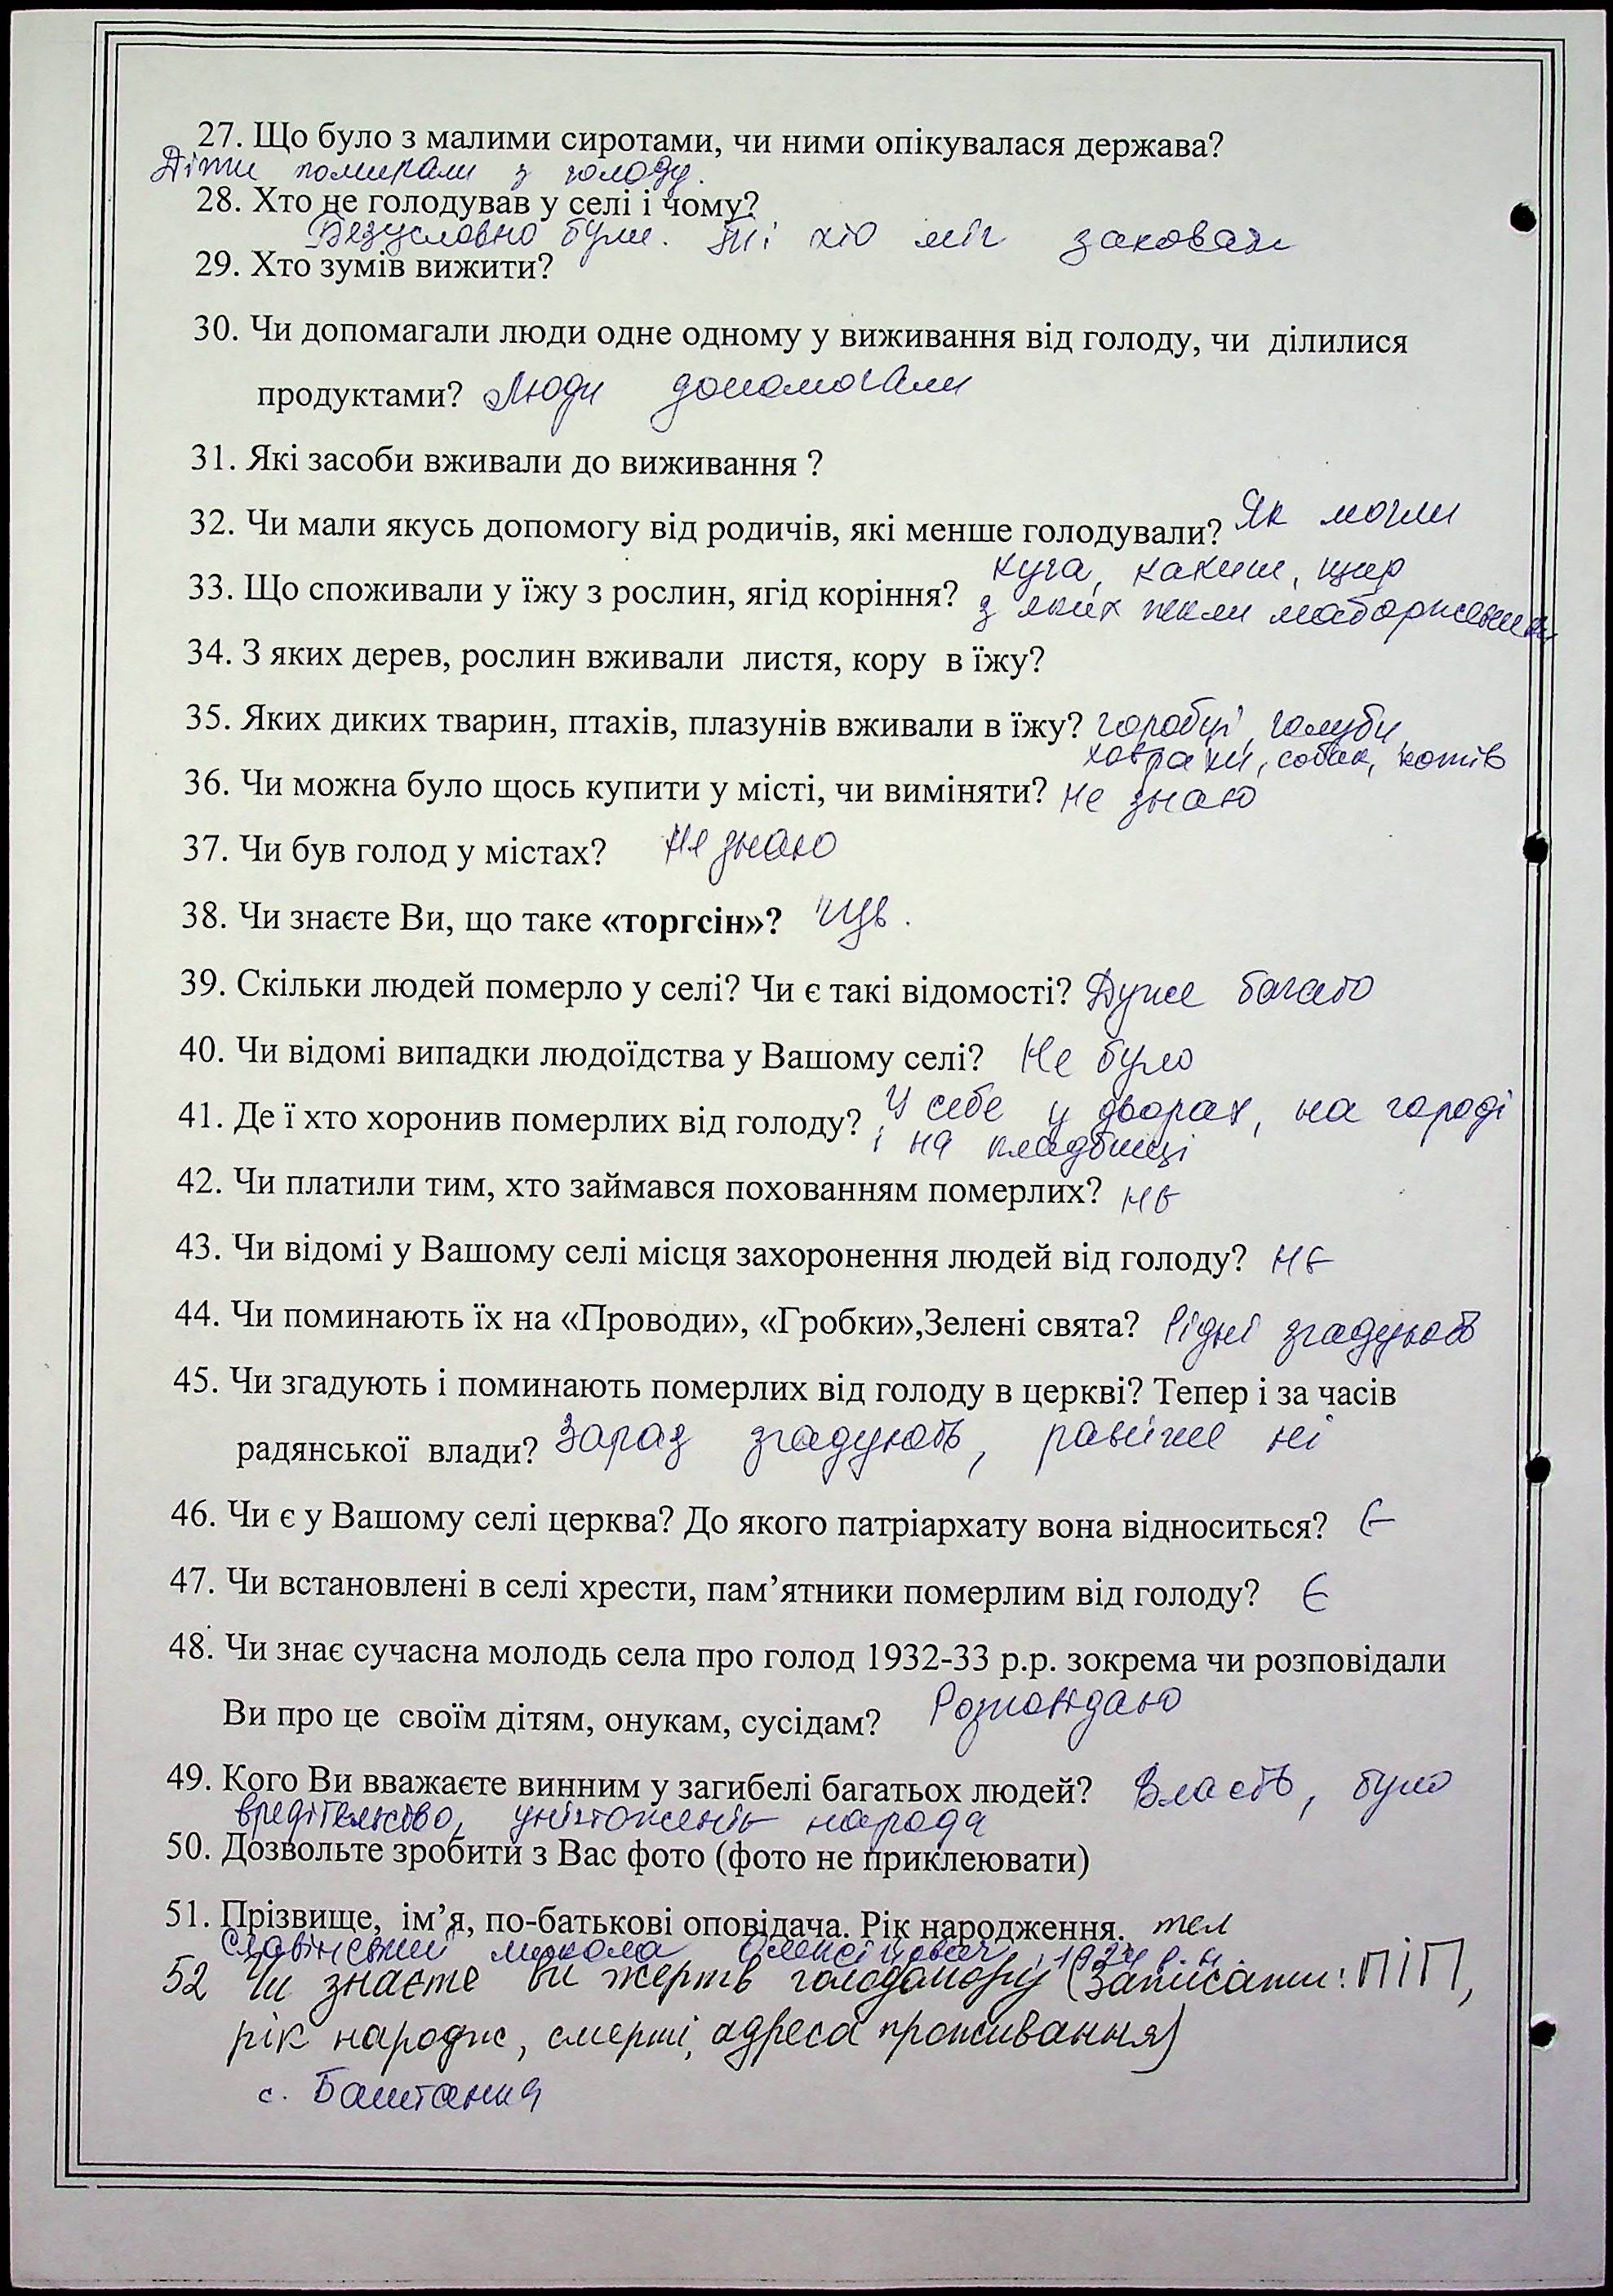 27. Що було з малими сиротами, чи ними опікувалася держава?
Діти помирали з голоду.
28. Хто не голодував у селі і чому?
Безусловно були. Ті хто міг заховати
29. Хто зумів вижити?
30. Чи допомагали люди одне одному у виживання від голоду, чи ділилися
продуктами? Люди допомогали
31. Які засоби вживали до виживання ?
32. Чи мали якусь допомогу від родичів, які менше голодували? Як могли
33. Що споживали у їжу з рослин, ягід коріння? куга, какиш, щир
з яких пекли маторженики
34. З яких дерев, рослин вживали листя, кору в їжу?
35. Яких диких тварин, птахів, плазунів вживали в їжу? горобці, голуби,
ховрахи, собак, котів
36. Чи можна було щось купити у місті, чи виміняти? не знаю
37. Чи був голод у містах? Не знаю
38. Чи знаєте Ви, що таке «торгсін»?
39. Скільки людей померло у селі? Чи є такі відомості? Дуже багато
40. Чи відомі випадки людоїдства у Вашому селі? Не було
41. Де ї хто хоронив померлих від голоду? У себе у дворах, на городі
і на кладбищі
42. Чи платили тим, хто займався похованням померлих? нє
43. Чи відомі у Вашому селі місця захоронення людей від голоду? нє
44. Чи поминають їх на «Проводи», «Гробки»,Зелені свята? Рідні згадують
45. Чи згадують і поминають померлих від голоду в церкві? Тепер і за часів
радянської влади? Зараз згадують, раніше ні
46. Чи є у Вашому селі церква? До якого патріархату вона відноситься? Є
47. Чи встановлені в селі хрести, пам’ятники померлим від голоду? Є
48. Чи знає сучасна молодь села про голод 1932-33 р.р. зокрема чи розповідали
Ви про це своїм дітям, онукам, сусідам? Розповідаю
49. Кого Ви вважаєте винним у загибелі багатьох людей? Власть, було
вредітельство, унічтоженіє народа
50. Дозвольте зробити з Вас фото (фото не приклеювати)
51. Прізвище, ім’я, по-батькові оповідача. Рік народження. тел
Славінський микола Олексійович, 1924 р.н.
52 Чи знаєте ви жертв голодомору (Записати: ПІП,
рік народж, смерті, адреса проживання)
с. Баштанка